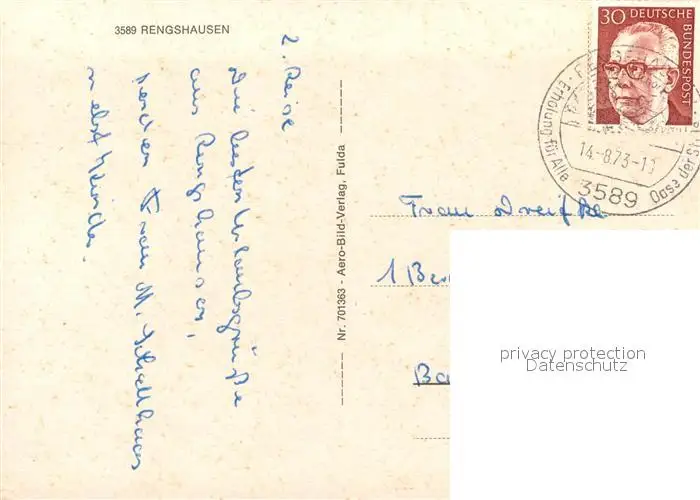 3589 RENGSHAUSEN
2. Reise
Die besten Urlaubsgrüße
aus Rengshausen,
senden Frau M. Schellhaas
nebst Kinder.
Nr. 701363 - Aero-Bild-Verlag, Fulda
30 DEUTSCHE BUNDESPOST
Erholung für Alle
14.-8.73-1
3589
Oase der
Frau Dreifke
1 Ber
Ba
privacy protection
Datenschutz